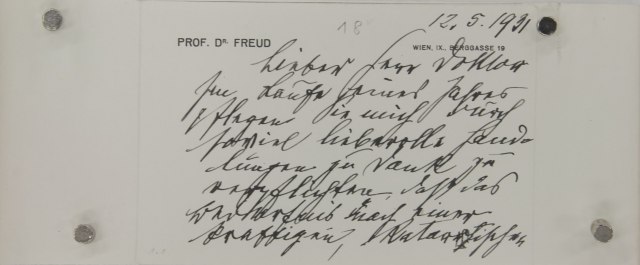 18
12.5.1931
PROF. DR. FREUD
WIEN, IX., BERGGASSE 19
Lieber Herr Doktor
Im Laufe eines Jahres
pflegen Sie mich durch
soviel liebevolle Hand-
lungen zu Dank zu
verpflichten, daß das
Bedürfnis nach einer
kräftigen,